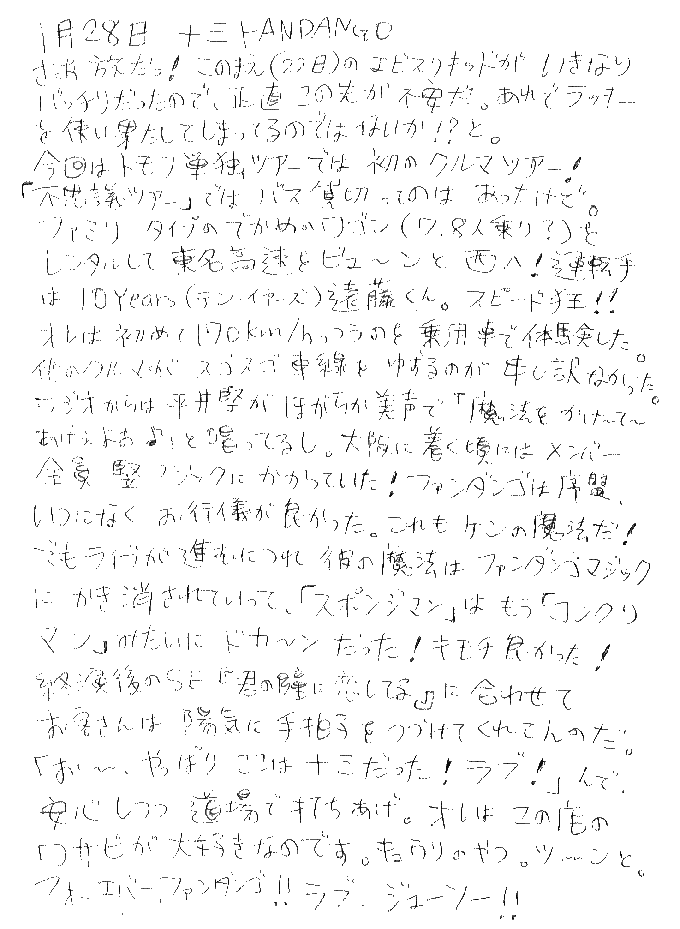 1月28日 十三FANDANGO
さあ 放だっ!このまえ(22日)のエビスリキッドが いきなり
バッチリだったので、正直 この先が 不安だ。あれでラッキー
を使い果たしてしまってるのではないか!?と。
今回はトモフ単独ツアーでは 初の クルマツアー!
「不思議ツアー」では バス貸切ってのは あったけど。
ファミリータイプの でかめのワゴン(7、8人乗り?)を
レンタルして 東名高速を ビュ〜ンと 西へ!運転手
は 10Years(テン・イヤーズ)遠藤くん。スピード狂!!
オレは 初めて 170km/hっつうのを 乗用車で体験した。
他のクルマが スゴスゴ車線を ゆずるのが 申し訳なかった。
ラジオからは 平井堅が ほがらか美声で「魔法をかけ〜て〜
あげえよお♪」と唱ってるし。大阪に着く頃には メンバー
全員 堅マジックに かかっていた!ファンダンゴは序盤、
いつになく お行儀が良かった。これも ケンの魔法だ!
でもライヴが進むにつれ 彼の魔法は ファンダンゴマジック
に かき消されていって、「スポンジマン」は もう「コンクリ
マン」みたいに ドカ〜ン だった!キモチ良かった!
終演後のSE『君の瞳に恋してる』に 合わせて
お客さんは 陽気に 手拍子を つづけてくれてんのだ。
「おぃ〜、やっぱり ここは 十三だった!ラブ!」んで、
安心しつつ 道場で打ちあげ。オレは この店の
ワサビが 大好きなのです。キュウリのやつ。ツ〜ンと。
フォーエバー、ファンダンゴ!!ラブ、ジューソー!!